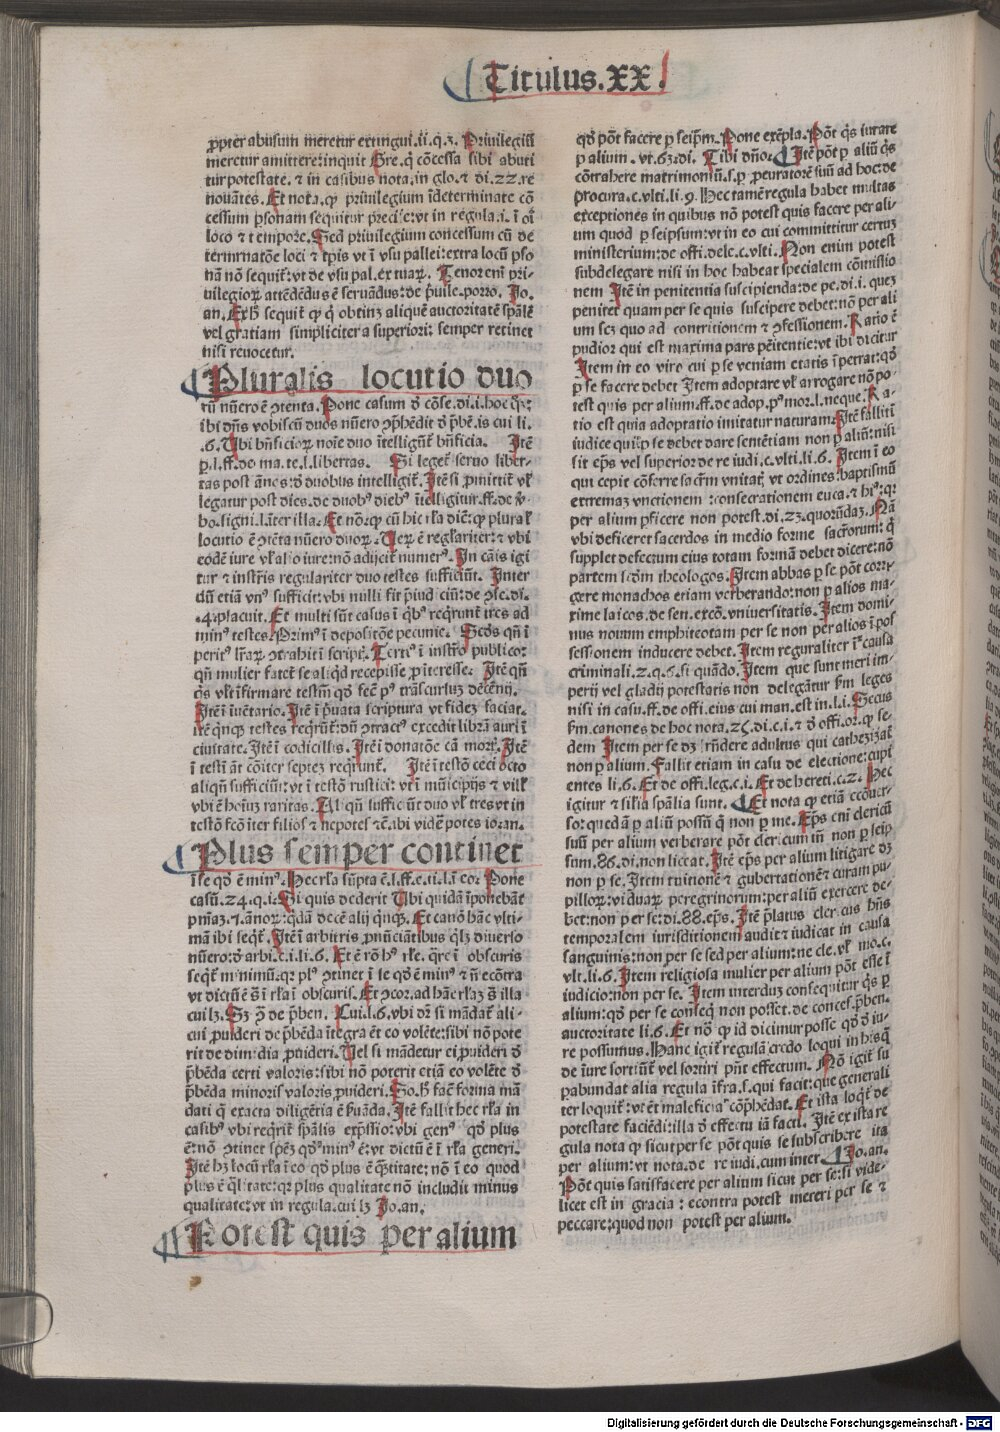 Titulus.XX.
ꝓpter abusum meretur extingui.ii.q.3. Priuilegiũ
meretur amittere: inquit Gre. q̇ cõcessa sibi abuti
tur potestate. ⁊ in casibus nota. in glo. ⁊ di.22. re
nouãtes. Et nota. ꝙ priuilegium ĩdeterminate cõ
cessum ꝑsonam sequitur precise: vt in regula. i. ĩ oĩ
loco ⁊ tempore. Sed priuilegium concessum cũ de
terminatõe loci ⁊ tꝑis vt ĩ vsu pallei: extra locũ ꝑso
nã nõ sequit᷑: vt de vsu pal. ex tuaꝝ. Tenor em̃ pri-
uilegioꝝ attẽdẽdus ẽ seruãdus: de p̃uile. porro. Jo.
an. Ex h̃ sequit᷑ ꝙ q̇ obtinꝫ aliquẽ auctoritatẽ sp̃alẽ
vel gratiam simpliciter a superiori: semper retinet
nisi reuocetur.
Pluralis locutio duo
rũ nũero ẽ ↄtenta. Pone casum d̓ cõse. di.i. hoc q̊ꝫ:
ibi dñs vobiscũ duos nũero ↄp̃hẽdit d̓ p̃bẽ. is cui li.
.6. Ubi bñficioꝝ noĩe duo ĩtelligũt᷑ bñficia. Itẽ
ꝑ.l.ff. de ma. te. l. libertas. Si leget᷑ seruo liber-
tas post ãnos: d̓ duobus intelligit᷑. Itẽ si ꝓmittit᷑ vł
legatur post dies. de duobꝰ diebꝰ ĩtelligitur. ff. de v̓-
bo. signi. l. ãter illa. Et nõ. ꝙ cũ hic rła dič: ꝙ plural̕
locutio ẽ ↄtẽta nũero duoꝝ. Uerũ ẽ reglariter: ⁊ vbi
eodẽ iure vł alio iure: nõ adijcit᷑ numerꝰ. In cãis igi
tur ⁊ instr̃is regulariter duo testes sufficiũt. Inter
dũ etiã vnꝰ sufficit: vbi nulli fit p̃iudiciũ: de ↄse. di.
.4. placuit. Et multi sũt casus ĩ q̇bꝰ req̇runt᷑ tres ad
minꝰ testes. Primꝰ ĩ depositõe pecunie. Scd̓s qñ ĩ
peritꝰ lr̃aꝝ ↄtrahit ĩ script̃. Tertiꝰ ĩ instr̃o publico:
qñ mulier fatet᷑ se aliq̇d recepisse ꝓ ĩteresse. Itẽ qñ
q̇s vł ĩfirmare testm̃ q̊d fec̃ pꝰ trãscursuꝫ decẽnij.
Itẽ ĩ iuẽtario. Itẽ ĩ p̃uata scriptura vt fidẽ faciat.
itẽ q̇nqꝫ testes req̇rũt᷑: dũ ↄtractꝰ excedit librã auri ĩ
ciuitate. Itẽ ĩ codicillis. Itẽ ĩ donatõe cã mort̃. Itẽ
ĩ testĩ ãt cõiter septeꝫ req̇runt᷑. Itẽ ĩ testõ ceci octo
aliqñ sufficiũt: vt ĩ testõ rustici: vt ĩ mũicipijs ⁊ vill̕
vbi ẽ hoĩuꝫ raritas. Al̕qñ sufficiũt duo vł tres vt in
testõ fcõ iter filios ⁊ nepotes ⁊c̃. ibi vidẽ potes io. an.
Plus semper continet
ĩ se q̊d ẽ minꝰ. Hec rła sũpta ẽ. l. ff. e. ti. l. ĩ eo. Pone
casũ. 24. q.i. Si quis dederit Ubi quidã ĩponebãt
p̃maꝫ. ⁊. ãnoꝝ: q̊dã decẽ alij q̇nqꝫ. Et canõ hãc vlti-
mã ibi seq̇t᷑. Itẽ ĩ arbitris ꝓnũciãtibus q̊lꝫ diuerso
nũero: d̓ arbi. c.i.li.6. Et ẽ rõ hꝰ rłe. qre ĩ obscuris
seq̇t᷑ minimũ: qꝛ plꝰ ↄtinet ĩ se q̊d ẽ minꝰ ⁊ ñ ecõtra
vt dictũ ẽ s̃ ĩ rła ĩ obscuris. Et ↄcor. ad hãc rłaꝫ s̃ illa
cui lꝫ. Sꝫ ↄ̃ de p̃ben. Cui. l.6. vbi dr̃ si mãdat᷑ ali-
cui ꝓuideri de p̃bẽda ĩtegra ẽt eo volẽte: sibi nõ pote
rit de dimidia ꝓuideri. Uel si mãdetur ei ꝓuideri d̓
p̃bẽda certi valoris: sibi nõ poterit etiã eo volẽte d̓
p̃bẽda minoris valoris ꝓuideri. So. h̃ fac̃ forma mã
dati q̃ exacta diligẽtia ẽ ẜuãda. Itẽ fallit hec rła in
casibꝰ vbi req̇rit᷑ sp̃alis exp̃ssio: vbi genꝰ q̊d plus
ẽ: nõ ↄtinet spẽꝫ q̊dꝰ minꝰ ẽ: vt dictũ ẽ ĩ rła generi.
Itẽ hꝫ locũ rła ĩ eo q̊d plus ẽ q̃titate: nõ ĩ eo quod
plus ẽ q̃litate: qꝛ plus qualitate nõ includit minus
qualitate: vt in regula. cui lꝫ Jo. an.
Potest quis per alium
qd̓ põt facere ꝑ seip̃m. Pone exẽpla. Põt q̇s iurare
ꝑ alium. vt. 63. di. Tibi dño. Itẽ põt ꝑ aliũ q̇s
cõtrahere matrimoniũ. s. ꝑ ꝓcuratorẽ suũ ad hoc: de
procura. c. vlti. li.9. Hec tamẽ regula habet multas
exceptiones in quibus nõ potest quis facere per ali-
um quod ꝑ seipsum: vt in eo cui committitur certuꝫ
ministerium: de offi. dele. c. vlti. Non enim potest
subdelegare nisi in hoc habeat specialem cõmissio
nem Itẽ in penitentia suscipienda: de pe. di.i. queꝫ
penitet quam per se quis suscipere debet: nõ per ali
um scꝫ quo ad contritionem ⁊ ↄfessionem. Ratio ẽ
pudior qui est maxima pars pẽitentie: vt ibi dicitur
Item in eo viro cui ꝑ se veniam etatis ĩpetrat: q̊d
ꝑ se facere debet Item adoptare vł arrogare nõ po-
test quis per alium. ff. de adop. pꝰ mor. l. neque. Ra-
tio est quia adoptatio imitatur naturam. Itẽ falliti
iudice qui ꝑ se debet dare sentẽtiam non ꝑ aliũ: nisi
sit ep̃s vel superior de re iudi. c. vlti. li.6. Itẽm ĩ eo
qui cepit cõferre sacr̃m vnitat᷑ vt ordines: baptismũ
extremaꝫ vnctionem: consecrationem euca. ⁊ hiꝰ: qꝛ
per alium ꝑficere non potest. di.23. quorũdaꝫ. Nã
vbi deficeret sacerdos in medio forme sacr̃orum: q̇
supplet defectum eius totam formã debet dicere: nõ
partem scd̓m theologos. Item abbas ꝑ se põt corri-
gere monachos etiam verberando: non ꝑ alios ma-
xime laicos. de sen. excõ. vniuersitatis. Item domi-
nus nouum emphiteotam per se non per alios ĩ pos
sessionem inducere debet. Item reguraliter ĩ causa
criminali. 2. q.6. si quãdo. Item que sunt meri im-
perij vel gladij potestatis non delegãtur ẜm leges
nisi in casu. ff. de offi. eius cui man. est in. l.i. Secus
ẜm. canones de hoc nota. 25. di. c.i. ⁊ d̓ offi. or. ꝙ se-
dem Item per se dꝫ r̃ndere adultus qui cathezizat᷑
non ꝑ alium. Fallit etiam in casu de electione: cupi
entes li.6. Et de offi. leg. c.i. Et de hereti. c.2. Hec
igitur ⁊ silia sp̃alia sunt. Et nota ꝙ etiã ecõuer-
so: quedã ꝑ aliũ possũ q̃ non ꝑ me. Ep̃s em̃ clericũ
suũ per alium verberare põt clericum tñ non ꝑ seip
sum. 86. di. non liceat. Itẽ ep̃s per alium litigare dꝫ
non ꝑ se. Item tuitionẽ ⁊ gubertationẽ ⁊ curam pu-
pilloꝝ: viduaꝝ peregrinorum: per aliũ exercere de-
bet: non per se: di.88. ep̃s. Itẽ p̃latus clericus hñs
temporalem iurisditionem audit ⁊ iudicat in causa
sanguinis: non per se sed per alium: ne cle. vł mo. c.
vlt. li.6. Item religiosa mulier per alium põt esse ĩ
iudicio: non per se. Item interduꝫ consequitur q̇s ꝑ
alium: q̊d per se conseq̇ non posset. de conces. p̃ben.
auctoritate li.6. Et nõ ꝙ id dicimur posse q̊d d̓ iu-
re possumus. Hanc igit᷑ regulã credo loqui in hisq̃
de iure sortiũt᷑ vel sortiri pñt effectum. Nõ igit᷑ su
ꝑabundat alia regula ĩfra. s. qui facit: que generali
ter loquit᷑: vt ẽt maleficia cõp̃hẽdat. Et ista loq̇t᷑ de
potestate faciẽdi: illa d̓ effectu iã facti. Itẽ ex ista re
gula nota ꝙ sicut per se põt quis se subscribere ita
per alium: vt nota. de re iudi. cum inter. Jo. an.
Põt quis satisfacere per alium sicut per se: si vide-
licet est in gracia: econtra potest mereri per se ⁊
peccare: quod non potest per alium.
Digitalisierung gefördert durch die Deutsche Forschungsgemeinschaft - DFG